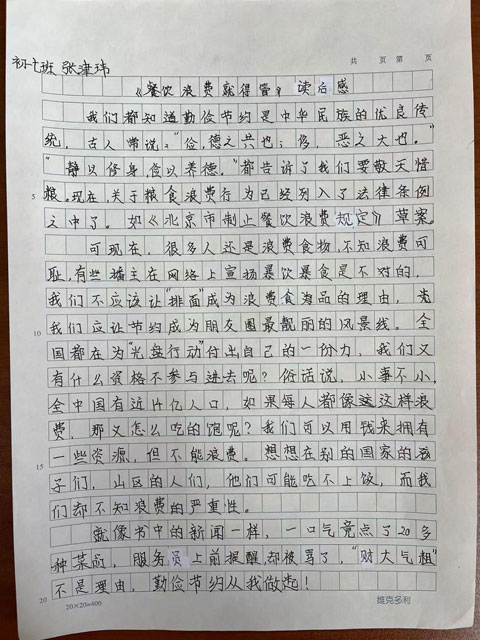 初七班 张津玮
共 页 第 页
《餐饮浪费就得管》读后感
我们都知道勤俭节约是中华民族的优良传
统，古人常说："俭，德之共也；侈，恶之大也。"
"静以修身，俭以养德。"都告诉了我们要敬天惜
粮。现在，关于粮食浪费行为已经列入了法律条例
5
之中了。如《北京市制止餐饮浪费规定》草案。
可现在，很多人还是浪费食物，不知浪费可
耻，有些播主在网络上宣扬暴饮暴食是不对的，
我们不应该让"排面"成为浪费食品的理由，
我们应让节约成为朋友圈最靓丽的风景线。全
10
国都在为"光盘行动"付出自己的一份力，我们又
有什么资格不参与进去呢？俗话说，小事不小，
全中国有近14亿人口，如果每人都像这样浪
费，那又怎么吃的饱呢？我们可以用钱来拥有
一些资源，但不能浪费。想想在别的国家的孩
15
子们，山区的人们，他们可能吃不上饭，而我
们却不知浪费的严重性。
就像书中的新闻一样，一口气竟点了20多
种菜品，服务员上前提醒，却被骂了，"财大气粗"
不是理由，勤俭节约从我做起！
20
20×20=400
维克多利